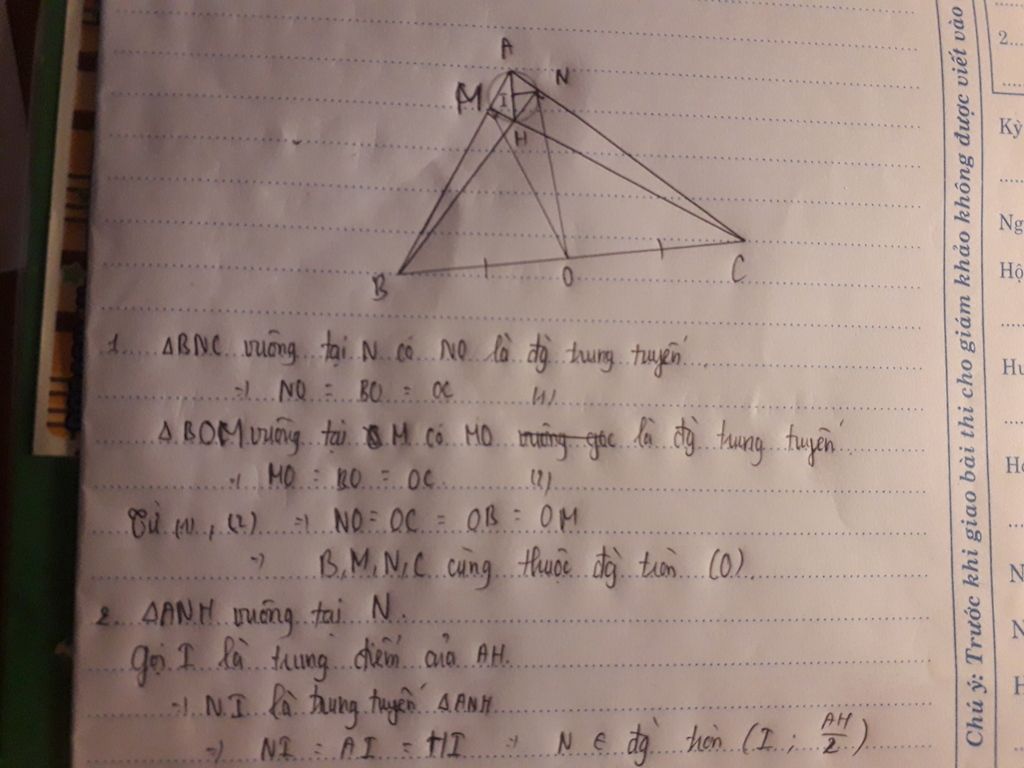 A
N
M
I
H
B
O
C
1. ΔBNC vuông tại N có NO là đg trung tuyến
=> NO = BO = OC (1)
ΔBOM vuông tại M có MO là đg trung tuyến
=> MO = BO = OC (2)
Từ (1), (2) => NO = OC = OB = OM
=> B, M, N, C cùng thuộc đg tròn (O).
2. ΔANH vuông tại N.
Gọi I là trung điểm của AH.
=> NI là trung tuyến ΔANH
=> NI = AI = HI => N ∈ đg tròn (I; AH/2)
Chú ý: Trước khi giao bài thi cho giám khảo không được viết vào
2...
Kỳ
Ng
Hộ
Hu
Họ
N
N
H